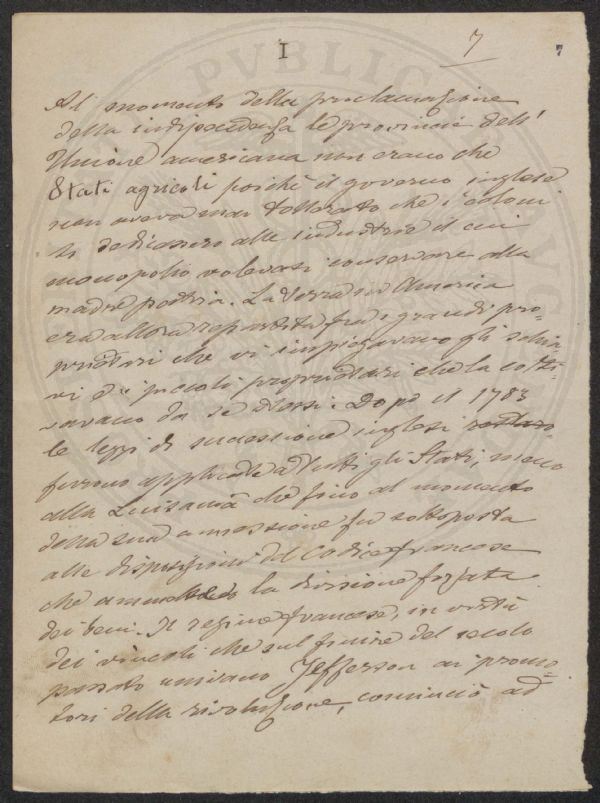 I
7
7
Al momento della proclamazione
della indipendenza le provincie dell'
Unione americana non erano che
Stati agricoli poichè il governo inglese
non aveva mai tollerato che i coloni
si dedicassero alle industrie il cui
monopolio volevasi conservare alla
madre patria. La terra in America
era allora repartita fra i grandi pro-
prietari che vi impiegavano gli schia-
vi e i piccoli proprietari che la colti-
vavano da se stessi. Dopo il 1783
le leggi di successione inglesi
furono applicate a tutti gli Stati, meno
alla Luisiania che fino al momento
della sua amessione fu sottoposta
alle disposizioni del Codice francese
che ammetteva la divisione forzata
dei beni. Il regime francese, in virtù
dei vincoli che sul finire del secolo
passato univano Jefferson ai promo-
tori della rivoluzione, cominciò ad